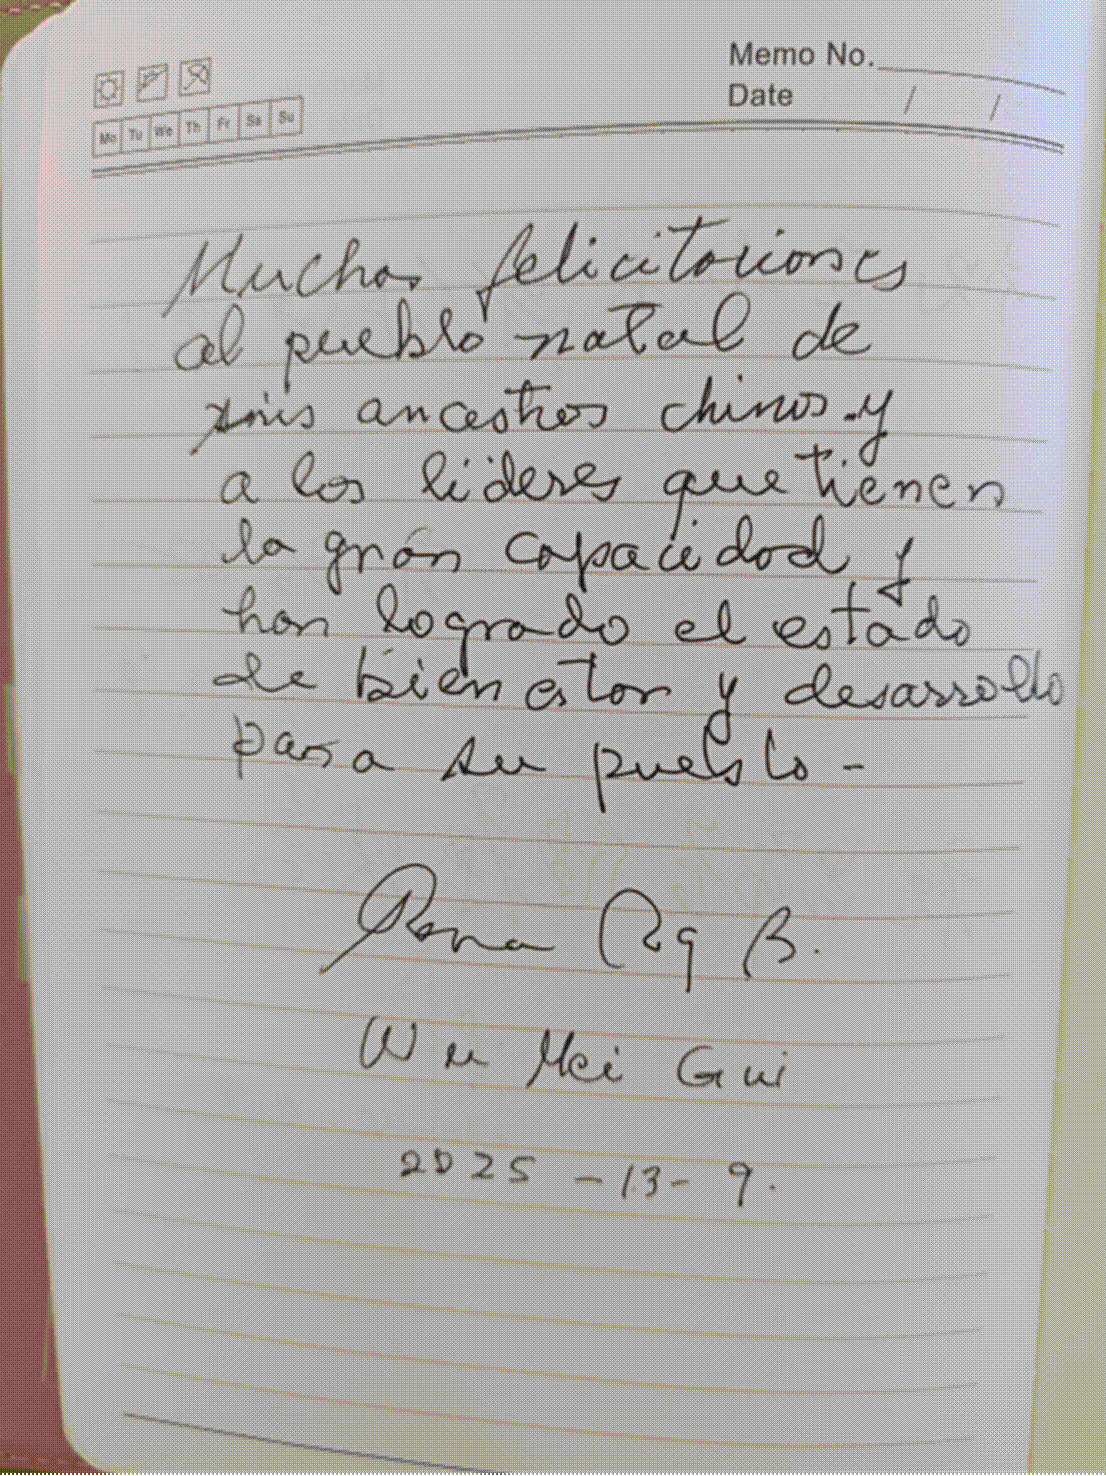 Memo No.
Date / /
Mo Tu We Th Fr Sa Su
Muchas felicitaciones
al pueblo natal de
mis ancestros chinos y
a los líderes que tienen
la gran capacidad y
han logrado el estado
de bienestar y desarrollo
para su pueblo -
B.
Wu Mei Gui
2025 - 13 - 9.